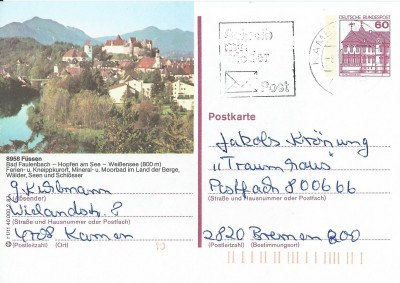 Schreib
mal
wieder
Post
DEUTSCHE BUNDESPOST
60
8958 Füssen
Bad Faulenbach – Hopfen am See – Weißensee (800 m)
Ferien- u. Kneippkurort, Mineral- u. Moorbad im Land der Berge,
Wälder, Seen und Schlösser
(Absender)
Wielandstr. 8
(Straße und Hausnummer oder Postfach)
4708 Kamen
(Postleitzahl) (Ort)
Postkarte
Jakobs Krönung
"Traumhaus"
Postfach 800666
(Straße und Hausnummer oder Postfach)
2820 Bremen 800
(Postleitzahl) (Bestimmungsort)